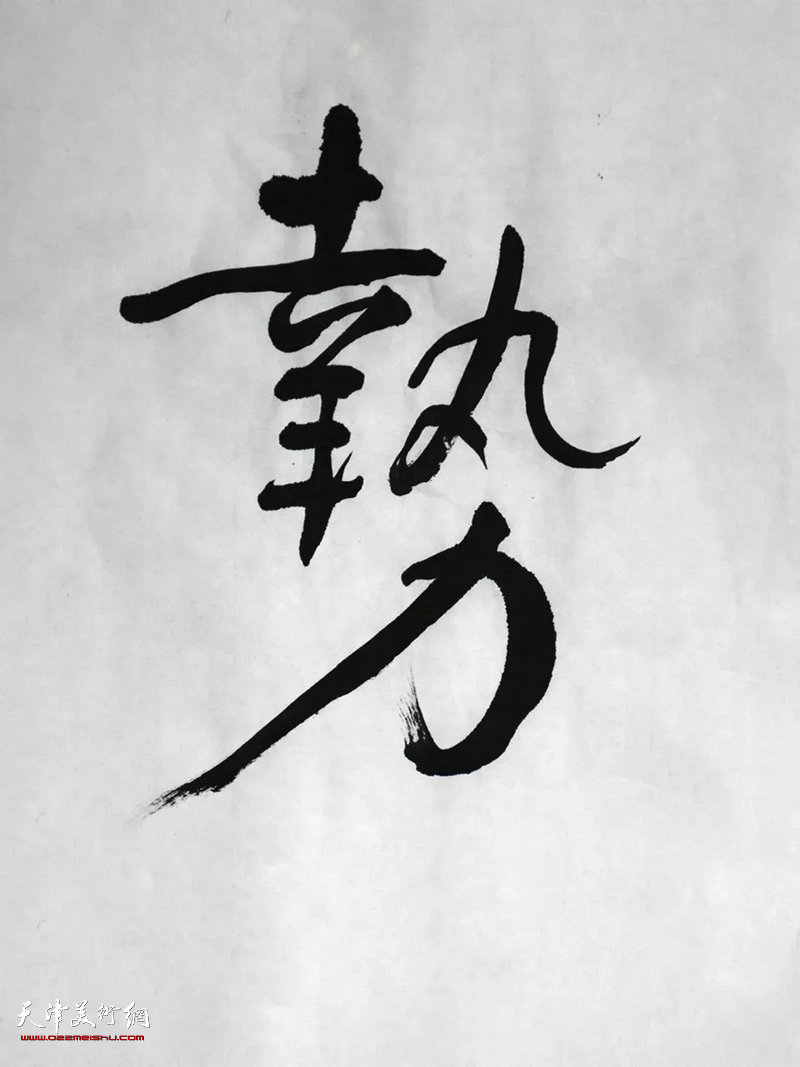 勢
天津美术網
www.022meishu.com